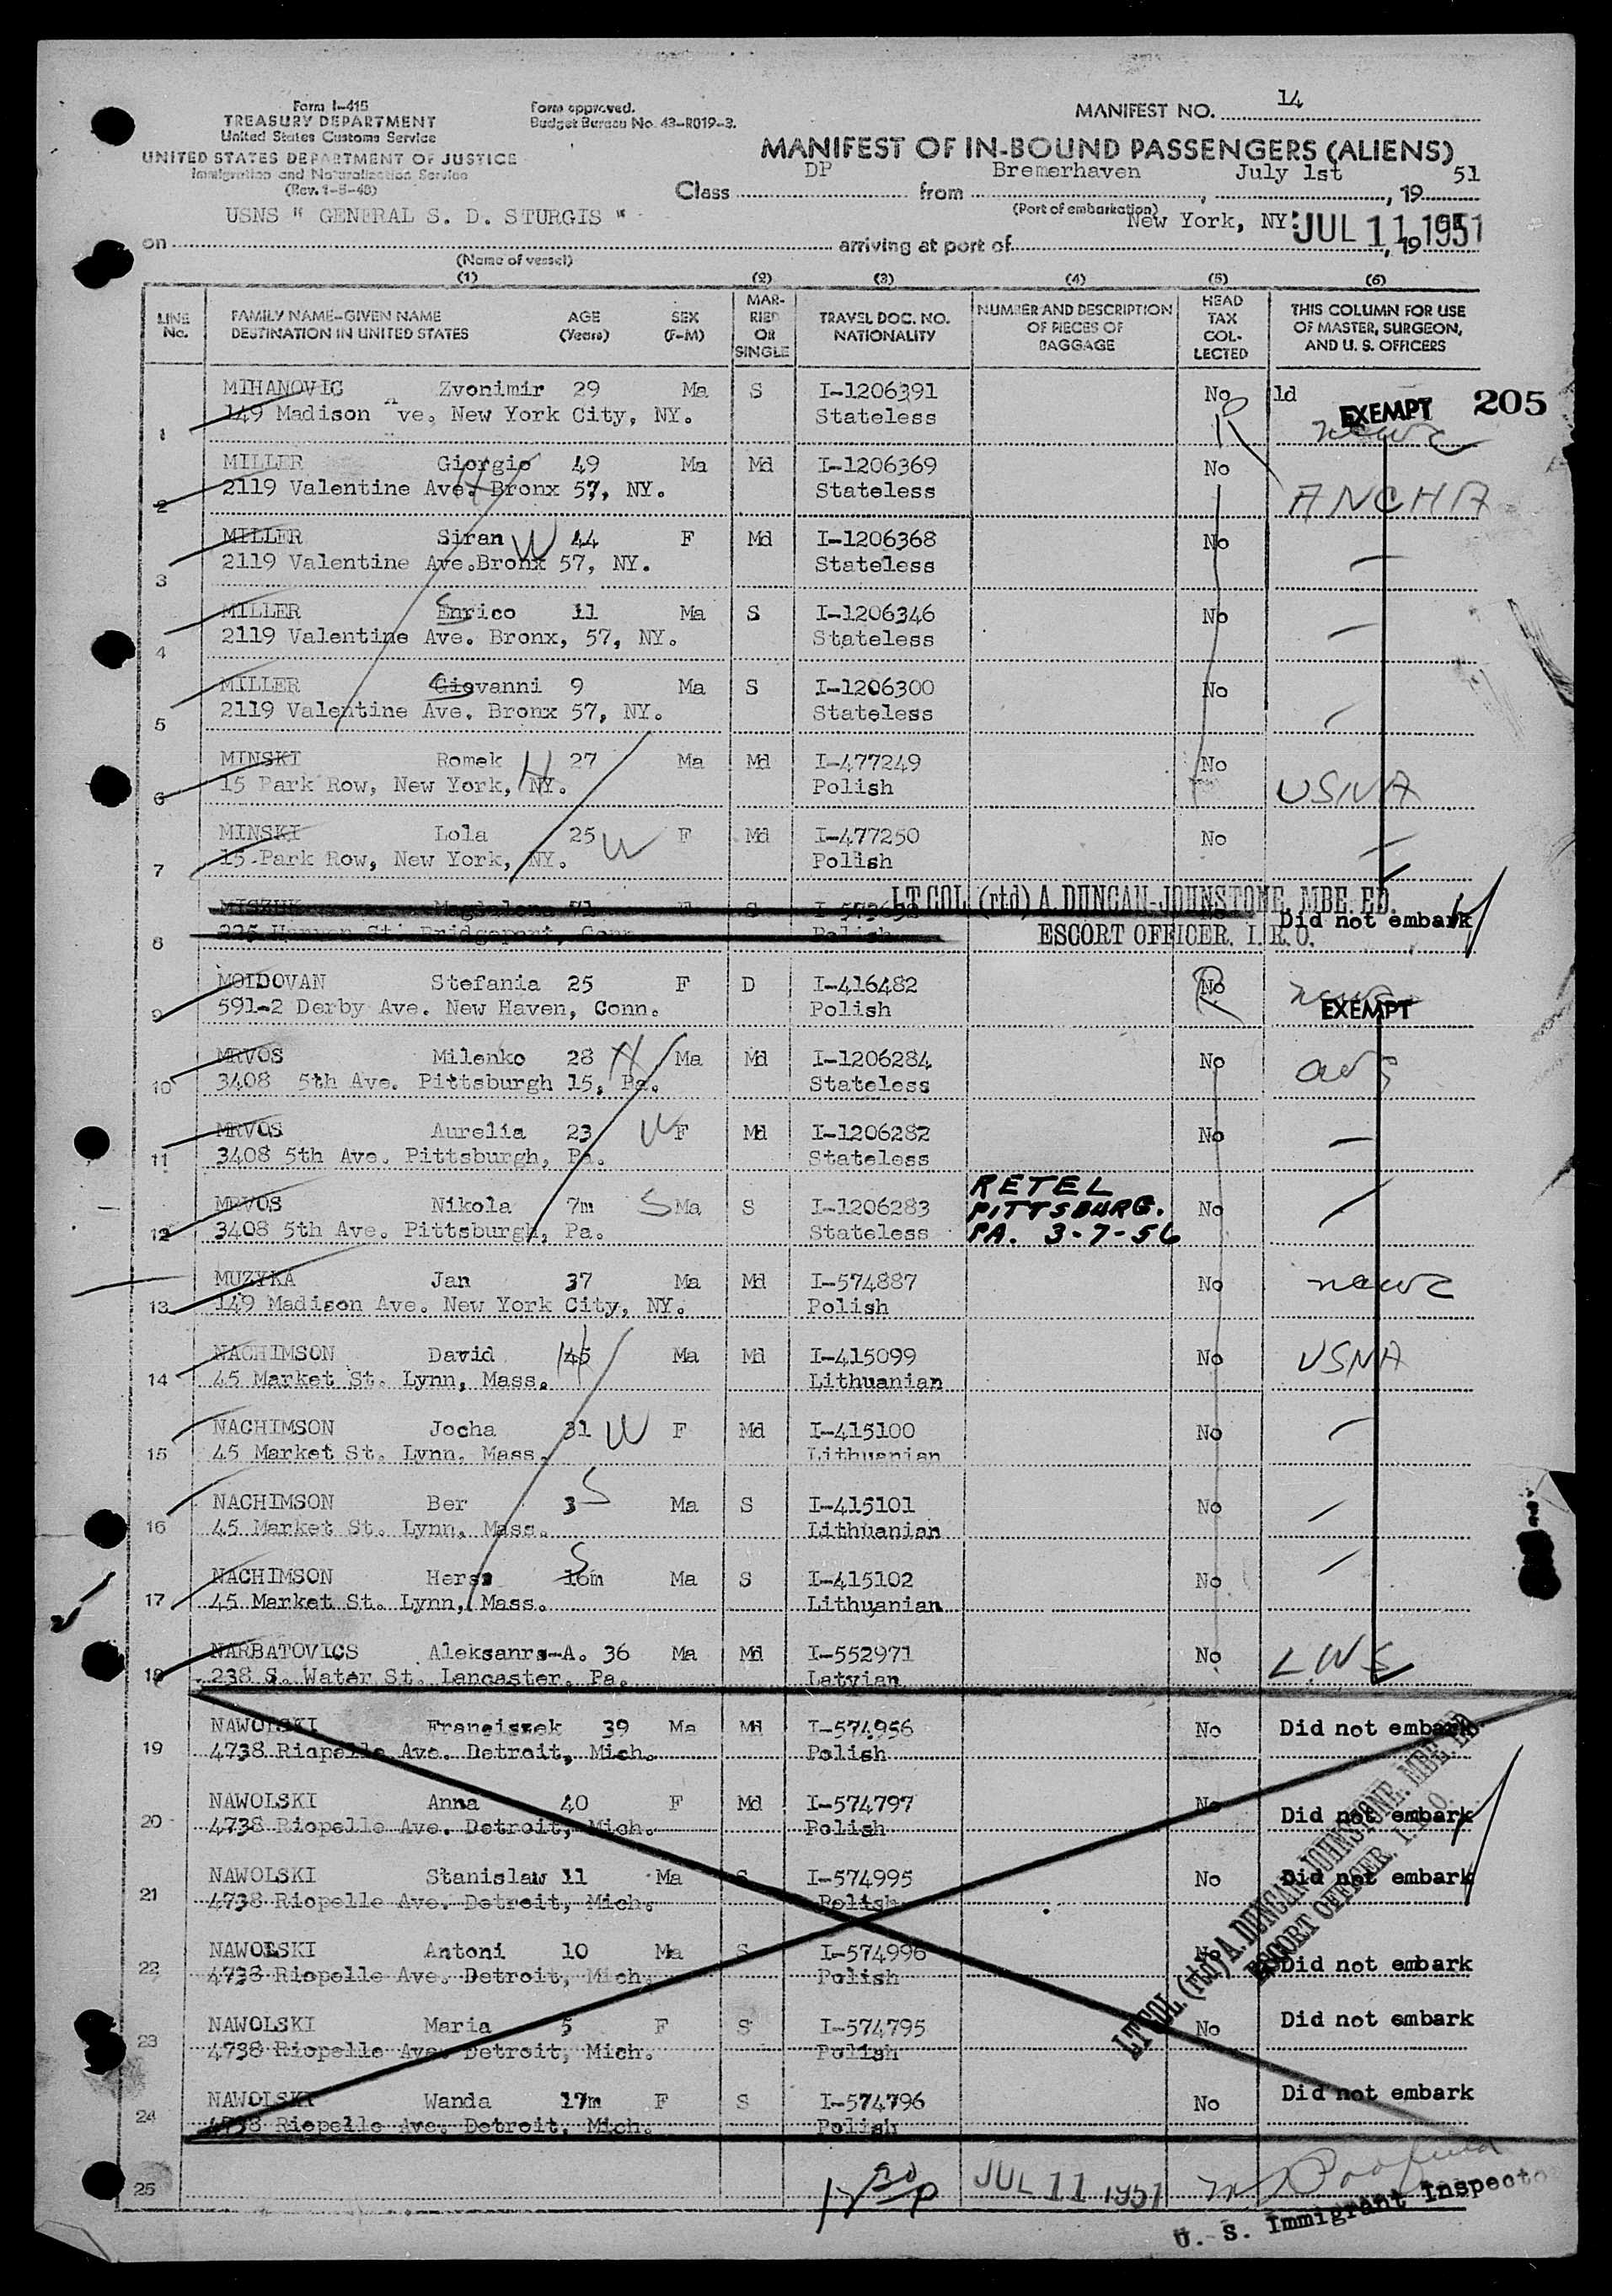 Form I-415
TREASURY DEPARTMENT
United States Customs Service
UNITED STATES DEPARTMENT OF JUSTICE
Immigration and Naturalization Service
(Rev. 1-5-48)
Form approved.
Budget Bureau No. 43-R019-3.
MANIFEST NO. 14
MANIFEST OF IN-BOUND PASSENGERS (ALIENS)
Class DP from Bremerhaven, July 1st, 1951
(Port of embarkation)
on USNS " GENERAL S. D. STURGIS " arriving at port of New York, NY: JUL 11 1951, 19
(Name of vessel)
(1) (2) (3) (4) (5) (6)
LINE No. FAMILY NAME-GIVEN NAME DESTINATION IN UNITED STATES AGE (Years) SEX (F-M) MARRIED OR SINGLE TRAVEL DOC. NO. NATIONALITY NUMBER AND DESCRIPTION OF PIECES OF BAGGAGE HEAD TAX COLLECTED THIS COLUMN FOR USE OF MASTER, SURGEON, AND U. S. OFFICERS
205
1 MIHANOVIC Zvonimir 29 Ma S I-1206391 No ld EXEMPT
149 Madison Ave, New York City, NY. Stateless
2 MILLER Giorgio 49 Ma Md I-1206369 No
2119 Valentine Ave. Bronx 57, NY. Stateless ANCHA
3 MILLER Siran W 44 F Md I-1206368 No
2119 Valentine Ave.Bronx 57, NY. Stateless
4 MILLER Enrico 11 Ma S I-1206346 No
2119 Valentine Ave. Bronx, 57, NY. Stateless
5 MILLER Giovanni 9 Ma S I-1206300 No
2119 Valentine Ave. Bronx 57, NY. Stateless
6 MINSKI Romek H 27 Ma Md I-477249 No
15 Park Row, New York, NY. Polish USNA
7 MINSKI Lola 25 W F Md I-477250 No
15 Park Row, New York, NY. Polish
LT COL. (rtd) A. DUNCAN-JOHNSTONE. MBE. ED.
ESCORT OFFICER. I. R. O.
8 MISZUK Magdalena 71 F S Did not embark
Bridgeport, Conn. Polish
9 MOIDOVAN Stefania 25 F D I-416482 No
591-2 Derby Ave. New Haven, Conn. Polish EXEMPT
10 MRVOS Milenko 28 H Ma Md I-1206284 No
3408 5th Ave. Pittsburgh 15, Pa. Stateless
11 MRVOS Aurelia 23 W F Md I-1206282 No
3408 5th Ave. Pittsburgh, Pa. Stateless
12 MRVOS Nikola 7m S Ma S I-1206283 No
3408 5th Ave. Pittsburgh, Pa. Stateless
RETEL
PITTSBURG.
PA. 3-7-56
13 MUZYKA Jan 37 Ma Md I-574887 No
149 Madison Ave. New York City, NY. Polish
14 NACHIMSON David 45 Ma Md I-415099 No USNA
45 Market St. Lynn, Mass. Lithuanian
15 NACHIMSON Jocha 31 W F Md I-415100 No
45 Market St. Lynn, Mass. Lithuanian
16 NACHIMSON Ber 3 S Ma S I-415101 No
45 Market St. Lynn, Mass. Lithuanian
17 NACHIMSON Herss 16m S Ma S I-415102 No
45 Market St. Lynn, Mass. Lithuanian
18 NARBATOVICS Aleksanrs-A. 36 Ma Md I-552971 No LWS
238 S. Water St. Lancaster. Pa. Latvian
19 NAWOLSKI Franciszek 39 Ma Md I-574956 No Did not embark
4738 Riopelle Ave. Detroit, Mich. Polish
20 NAWOLSKI Anna 40 F Md I-574797 No Did not embark
4738 Riopelle Ave. Detroit, Mich. Polish
21 NAWOLSKI Stanislaw 11 Ma S I-574995 No Did not embark
4738 Riopelle Ave. Detroit, Mich. Polish
22 NAWOLSKI Antoni 10 Ma S I-574996 No Did not embark
4738 Riopelle Ave. Detroit, Mich. Polish
23 NAWOLSKI Maria 5 F S I-574795 No Did not embark
4738 Riopelle Ave. Detroit, Mich. Polish
24 NAWOLSKI Wanda 17m F S I-574796 No Did not embark
4738 Riopelle Ave. Detroit, Mich. Polish
LT COL. (rtd) A. DUNCAN-JOHNSTONE. MBE. ED
ESCORT OFFICER. I. R. O.
25 JUL 11 1951
U. S. Immigrant Inspector